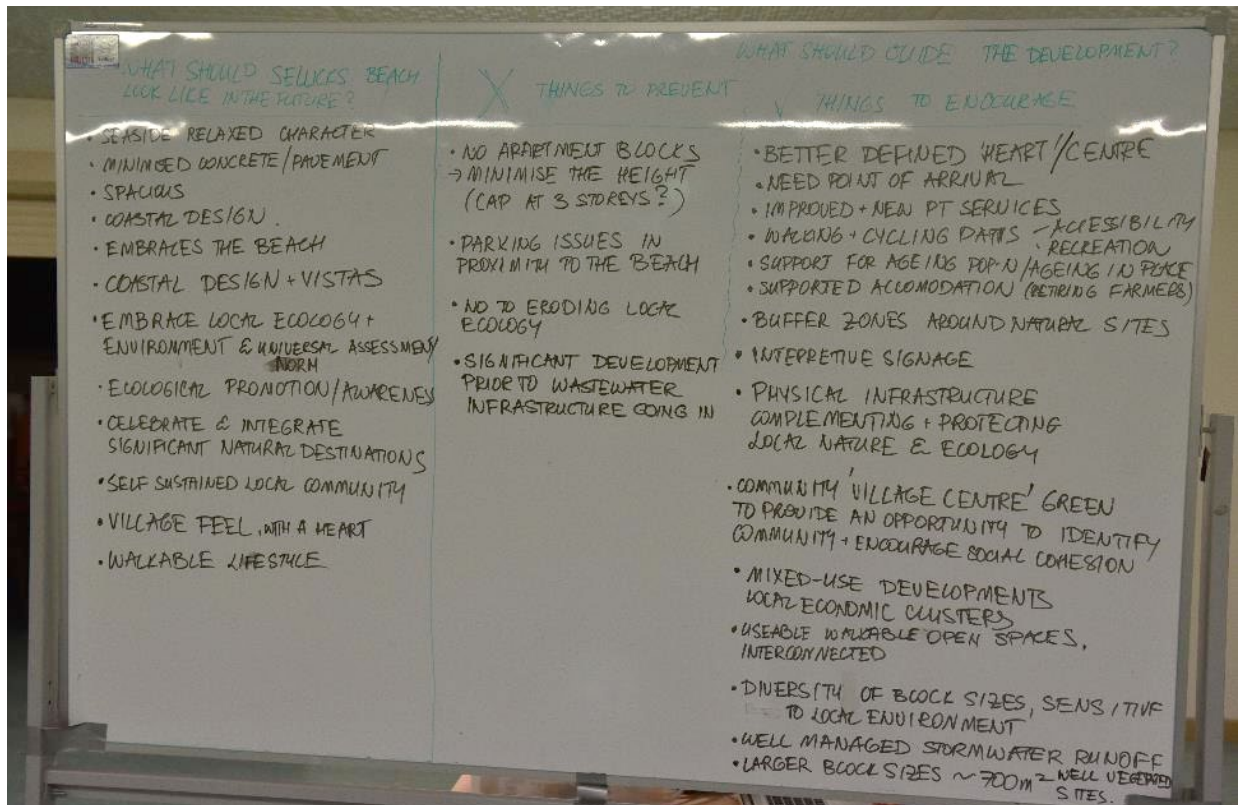 WHAT SHOULD SELLICKS BEACH
LOOK LIKE IN THE FUTURE?
• SEASIDE RELAXED CHARACTER
• MINIMISED CONCRETE/PAVEMENT
• SPACIOUS
• COASTAL DESIGN.
• EMBRACES THE BEACH
• COASTAL DESIGN + VISTAS
• EMBRACE LOCAL ECOLOGY +
ENVIRONMENT & UNIVERSAL ASSESSMENT/
NORM
• ECOLOGICAL PROMOTION/AWARENESS
• CELEBRATE & INTEGRATE
SIGNIFICANT NATURAL DESTINATIONS
• SELF SUSTAINED LOCAL COMMUNITY
• VILLAGE FEEL, WITH A HEART
• WALKABLE LIFESTYLE
X THINGS TO PREVENT
• NO APARTMENT BLOCKS
→ MINIMISE THE HEIGHT
(CAP AT 3 STOREYS?)
• PARKING ISSUES IN
PROXIMITY TO THE BEACH
• NO TO ERODING LOCAL
ECOLOGY
• SIGNIFICANT DEVELOPMENT
PRIOR TO WASTEWATER
INFRASTRUCTURE GOING IN
WHAT SHOULD GUIDE THE DEVELOPMENT?
✓ THINGS TO ENCOURAGE
• BETTER DEFINED 'HEART'/CENTRE
• NEED POINT OF ARRIVAL
• IMPROVED + NEW PT SERVICES
• WALKING + CYCLING PATHS - ACCESSIBILITY
• RECREATION
• SUPPORT FOR AGEING POP-N/AGEING IN PLACE
• SUPPORTED ACCOMODATION (RETIRING FARMERS)
• BUFFER ZONES AROUND NATURAL SITES
• INTEPRETIVE SIGNAGE
• PHYSICAL INFRASTRUCTURE
COMPLEMENTING + PROTECTING
LOCAL NATURE & ECOLOGY
• COMMUNITY 'VILLAGE CENTRE' GREEN
TO PROVIDE AN OPPORTUNITY TO IDENTIFY
COMMUNITY + ENCOURAGE SOCIAL COHESION
• MIXED-USE DEVELOPMENTS
LOCAL ECONOMIC CLUSTERS
• USEABLE WALKABLE OPEN SPACES,
INTERCONNECTED
• DIVERSITY OF BLOCK SIZES, SENSITIVE
TO LOCAL ENVIRONMENT
• WELL MANAGED STORMWATER RUNOFF
• LARGER BLOCK SIZES ~700m² WELL VEGETATED
SITES.